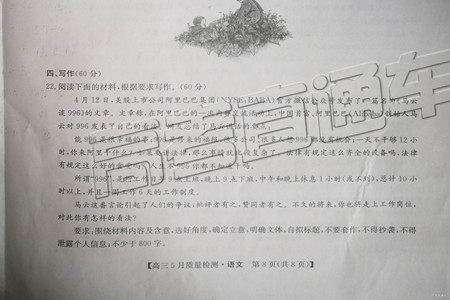 四、写作(60分)
22.阅读下面的材料,根据要求写作。(60分)
4月12日,美股上市公司阿里巴巴集团(NYSE:BABA)官方微信公众号发布了一篇名为《马云
谈996》的文章。文章称,在阿里巴巴的一次内部交流活动上,中国首富、阿里巴巴
云对996发表了自己的看法。网友总结了马云
能996是很幸福的事 很多公司、很多人想996都没有机会,一天不干够12小
时,你来阿里干什么?
有规定这么好的
所谓“996”,是指工作日早9点上班,晚上9点下班,中午和晚上休息1小时(或不到),总计10小
时以上,并且一周工作6天的工作制度。
马云这番言论引起了人们的争议,批评者有之,赞同者有之。不久的将来,你也将走上工作岗位,
对此你有怎样的看法?
要求:围绕材料内容及含意,选好角度,确定立意,明确文体,自拟标题,不要套作,不得抄袭,不得
泄露个人信息;不少于800字。
【高三5月质量检测·语文 第8页(共8页)】
高考直通车